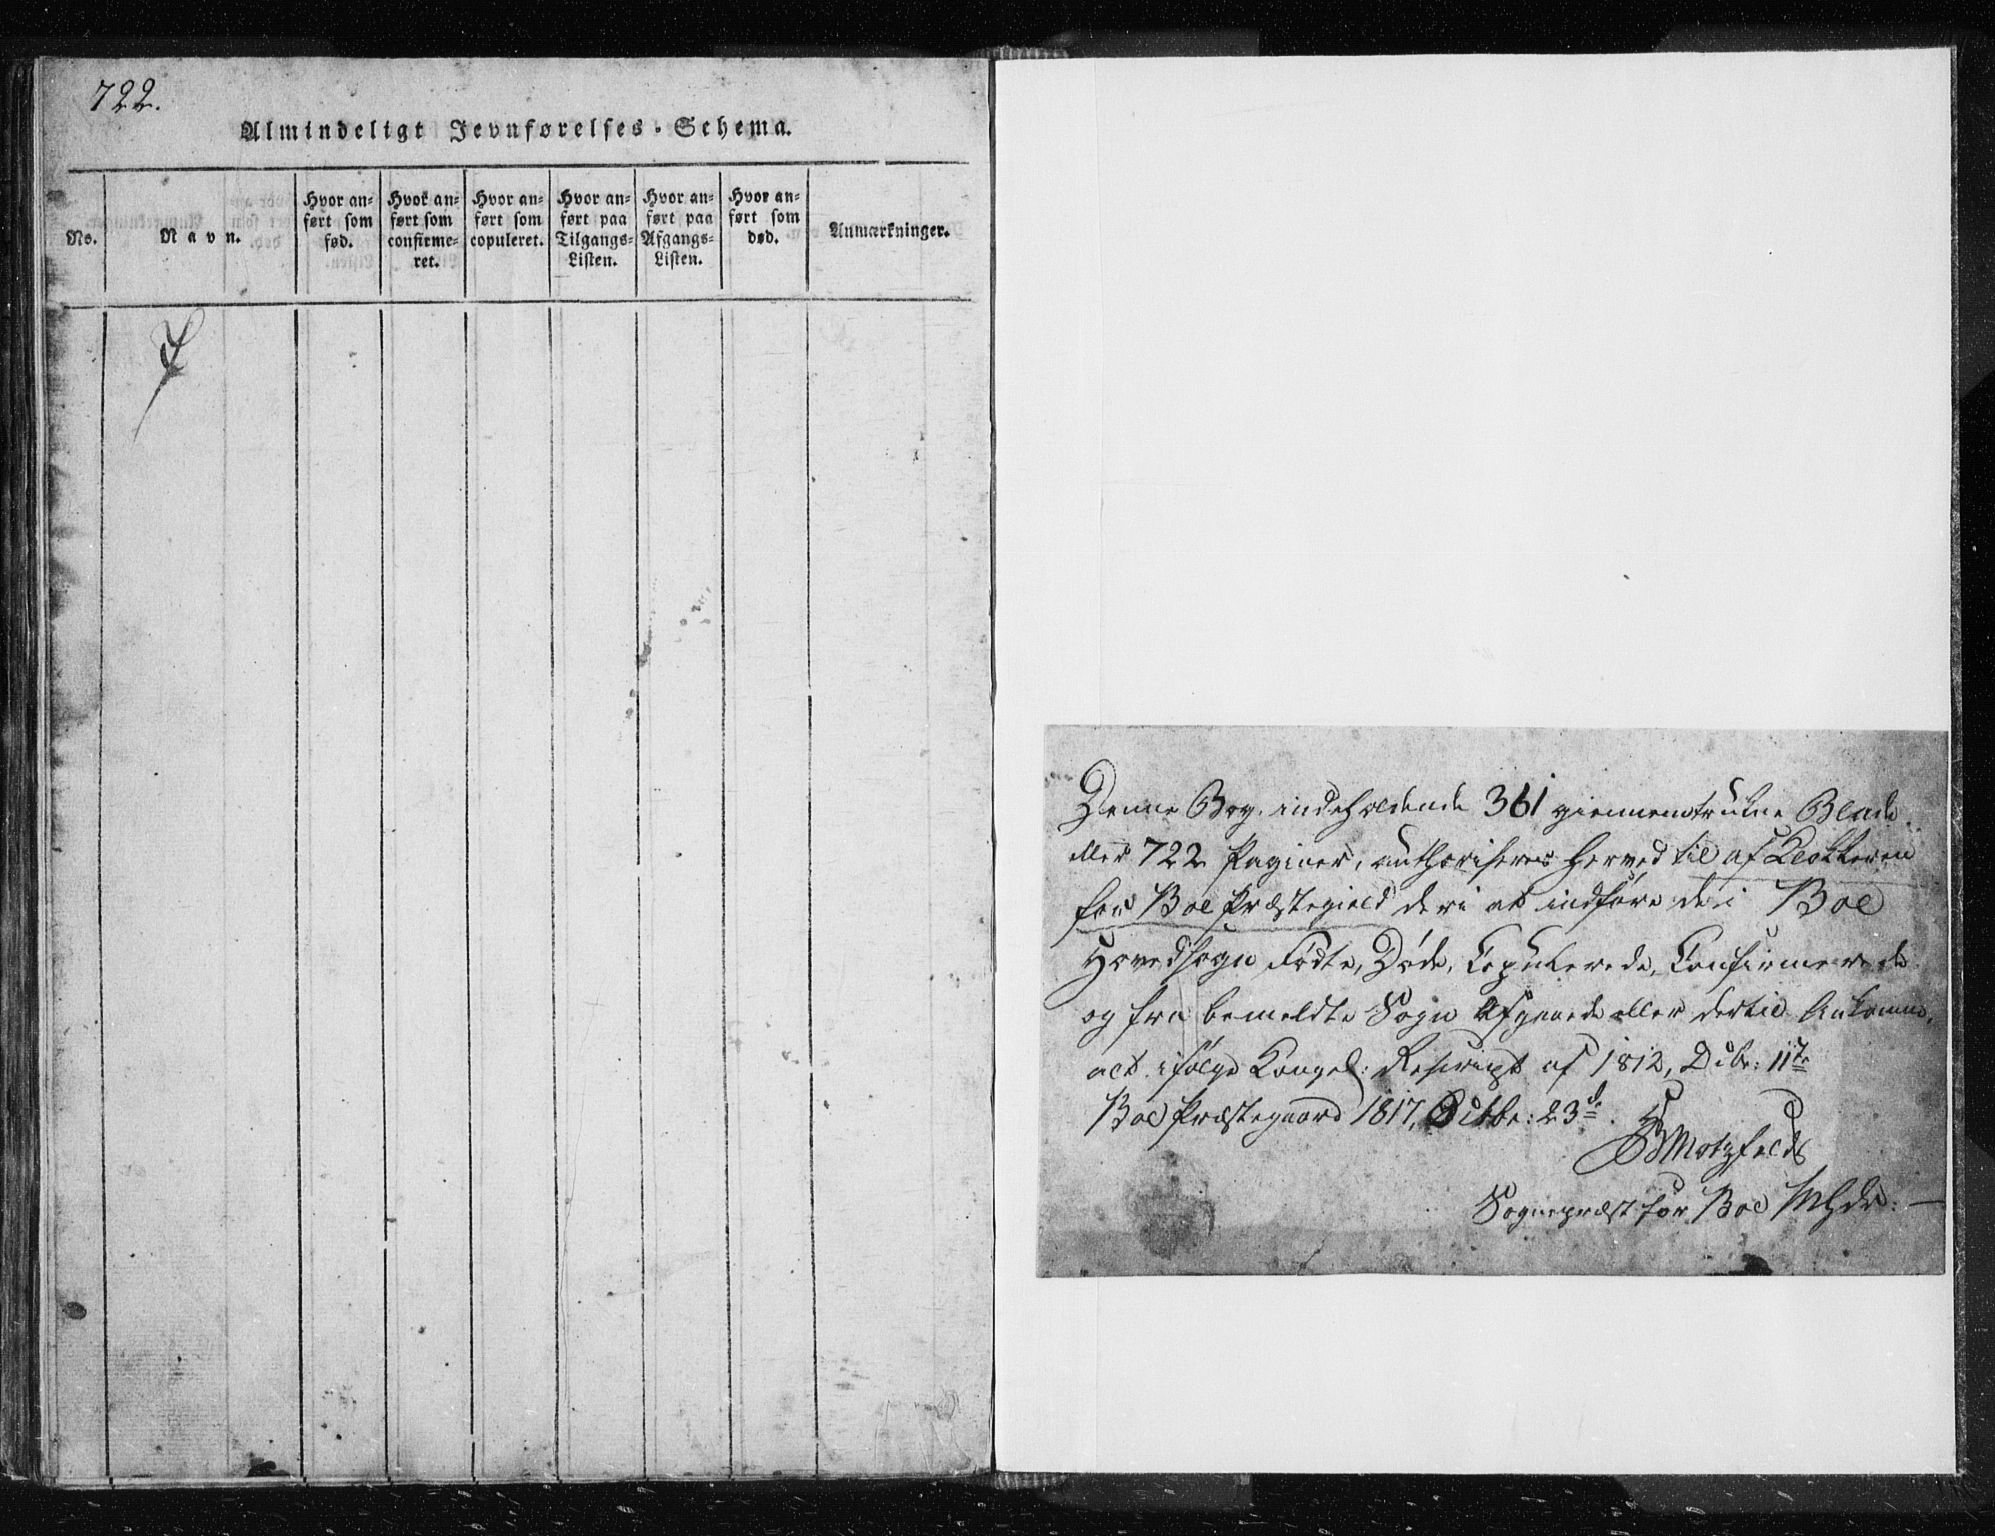 722.
Almindeligt Jevnførelses-Schema.
No.
Navn.
Hvor an-
ført som
fød.
Hvor an-
ført som
confirme-
ret.
Hvor an-
ført som
copuleret.
Hvor an-
ført paa
Tilgangs-
Listen.
Hvor an-
ført paa
Afgangs-
Listen.
Hvor an-
ført som
død.
Anmærkninger.
Denne Bog, indeholdende 361 giennemtrukne Blade
eller 722 Paginer, authoriseres herved til af Klokkeren
for Boe Præstegield deri at indføre de i Boe
Hovedsogn Fødte, Døde, Copulerede, Confirmerede
og fra bemeldte Sogn Afgaaede eller dertil Ankomne,
alt ifølge Kongel: Rescript af 1812, Dcbr: 11te
Boe Præstegaard 1817, Octbr: 23de.
Motzfeldt
Sognepræst for Boe